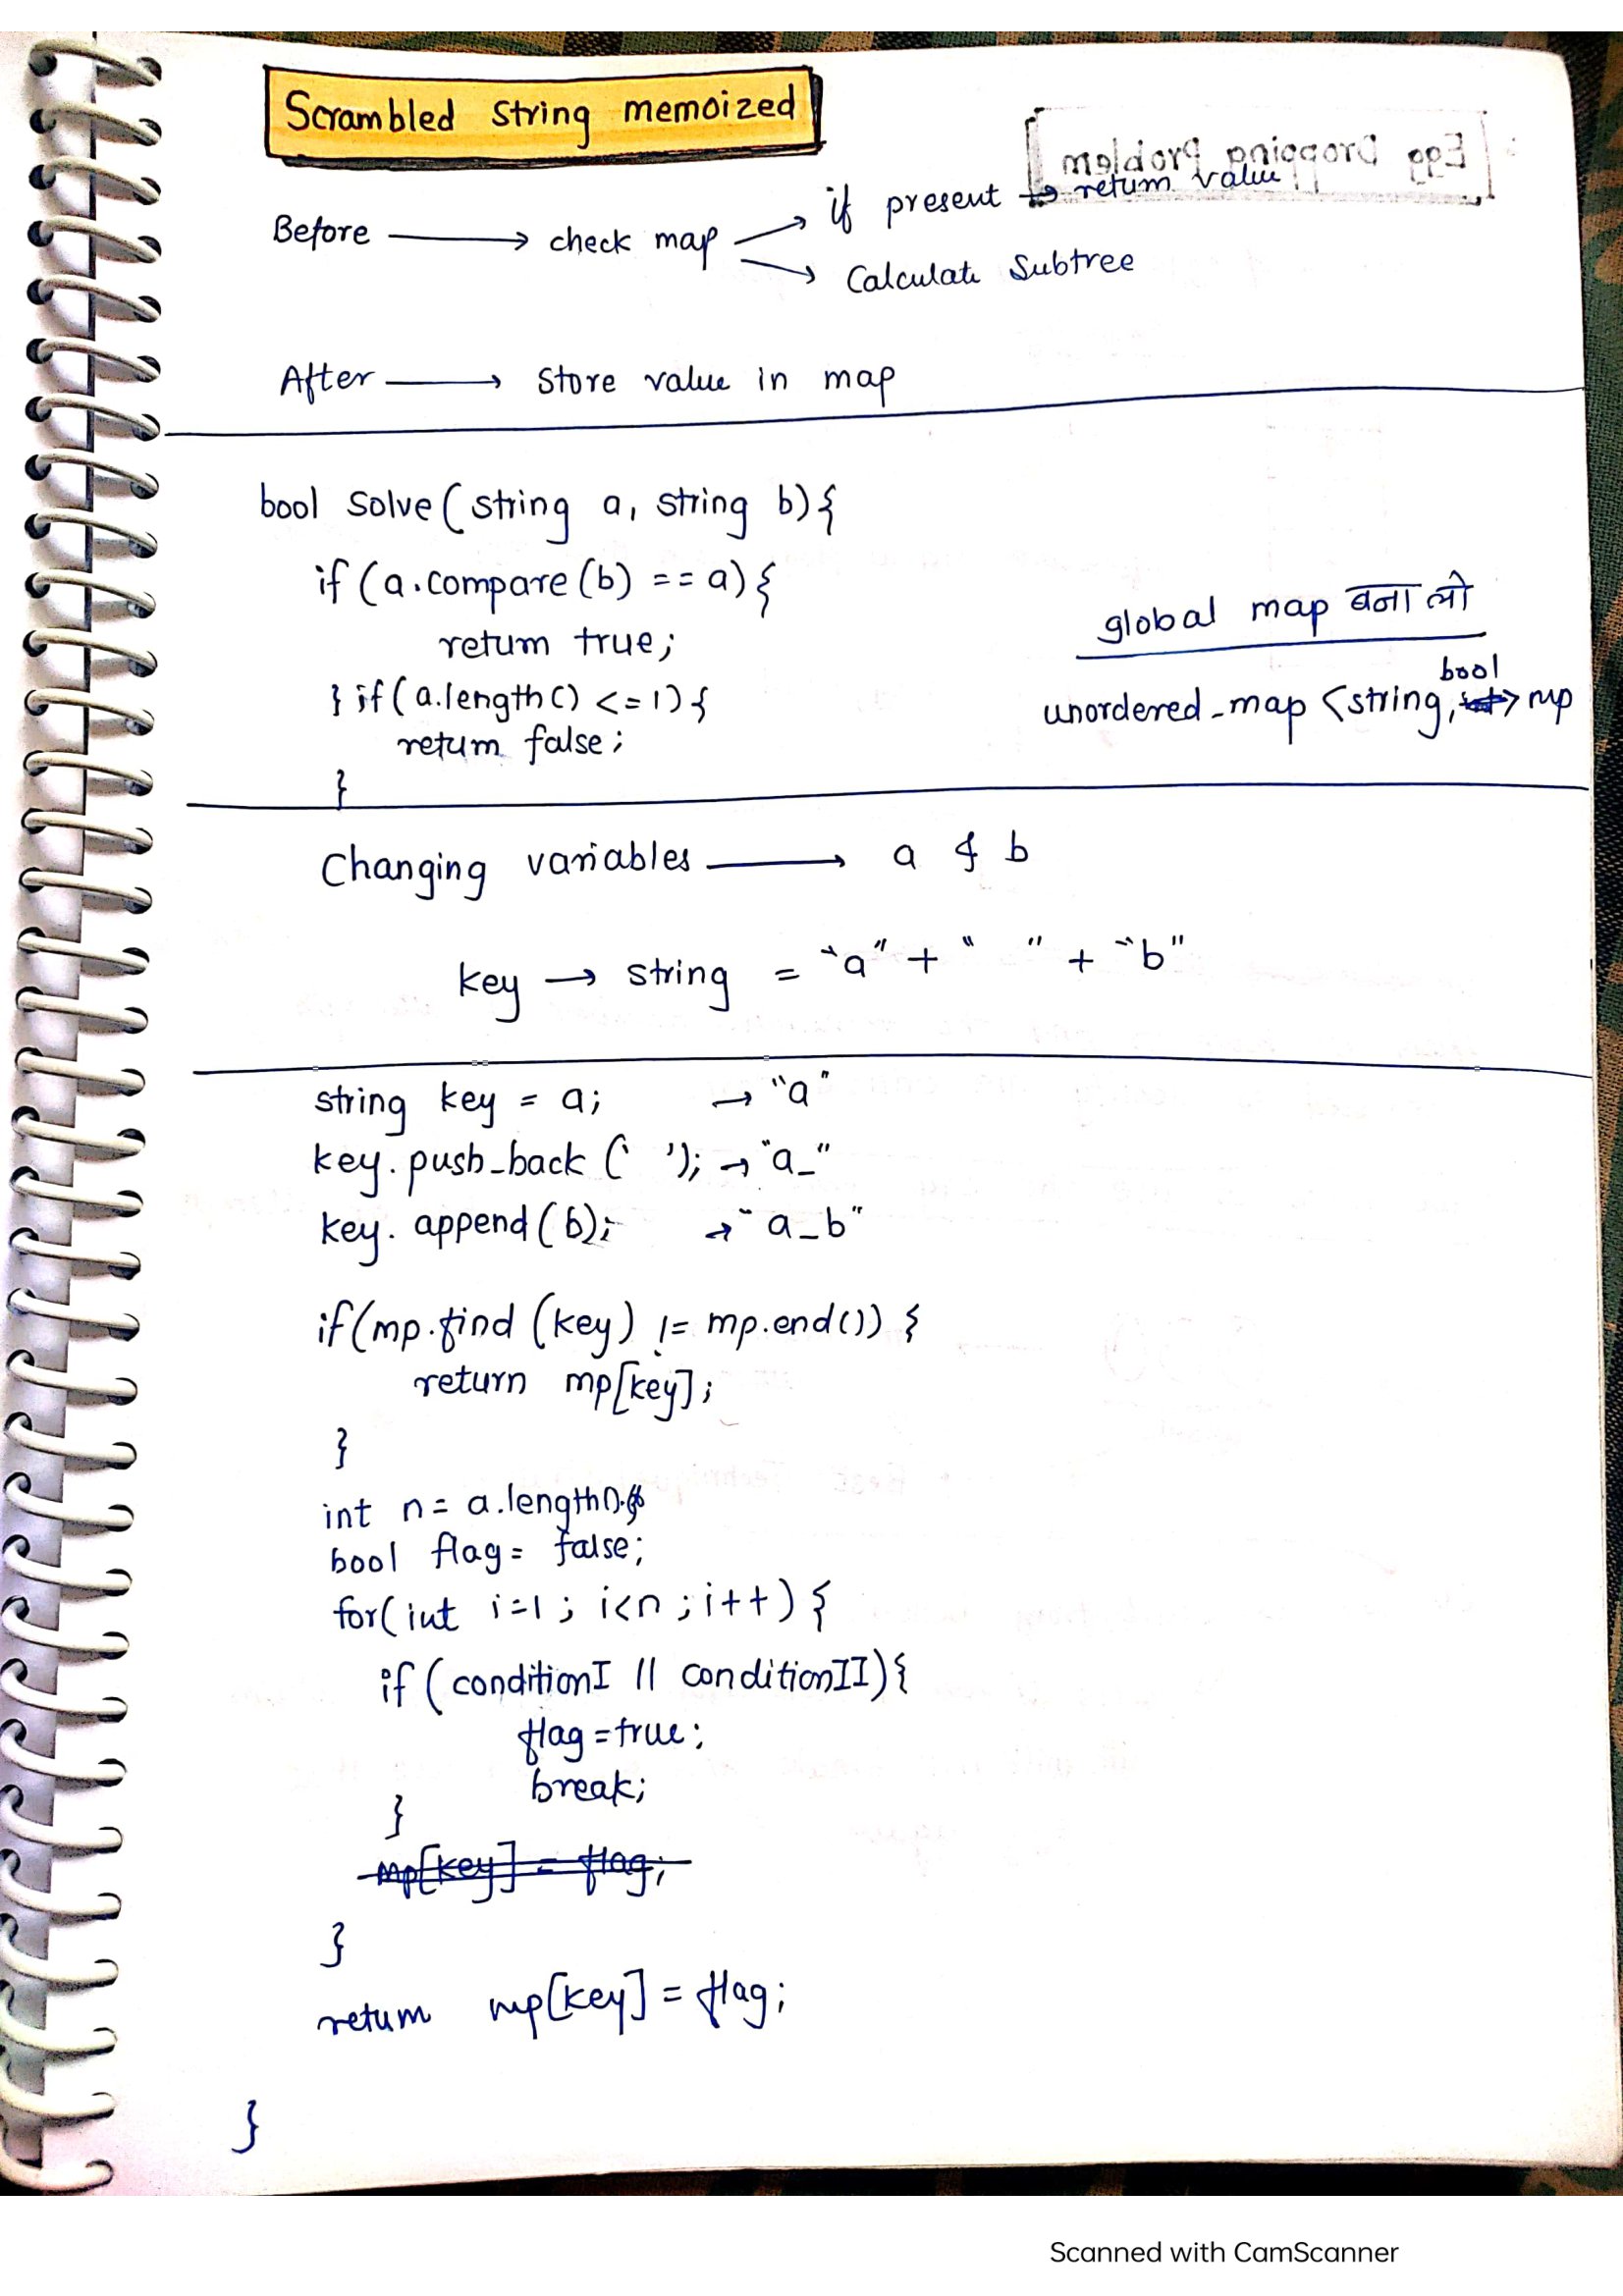 Scrambled string memoized
Egg Dropping Problem
Before ⟶ check map → if present → return value
→ Calculate Subtree
After ⟶ Store value in map
bool Solve(string a, string b){
if (a.compare(b) == a){
return true;
} if(a.length() <= 1){
return false;
}
global map बना लो
bool
unordered_map <string, int> mp
Changing variables ⟶ a & b
key → string = "a" + " " + "b"
string key = a; → "a"
key.push_back (' '); → "a_"
key. append(b); → "a_b"
if(mp.find (key) != mp.end()) {
return mp[key];
}
int n = a.length();
bool flag = false;
for(int i=1; i<n ; i++) {
if (conditionI || conditionII){
flag = true;
break;
}
mp[key] = flag;
}
return mp[key] = flag;
}
Scanned with CamScanner